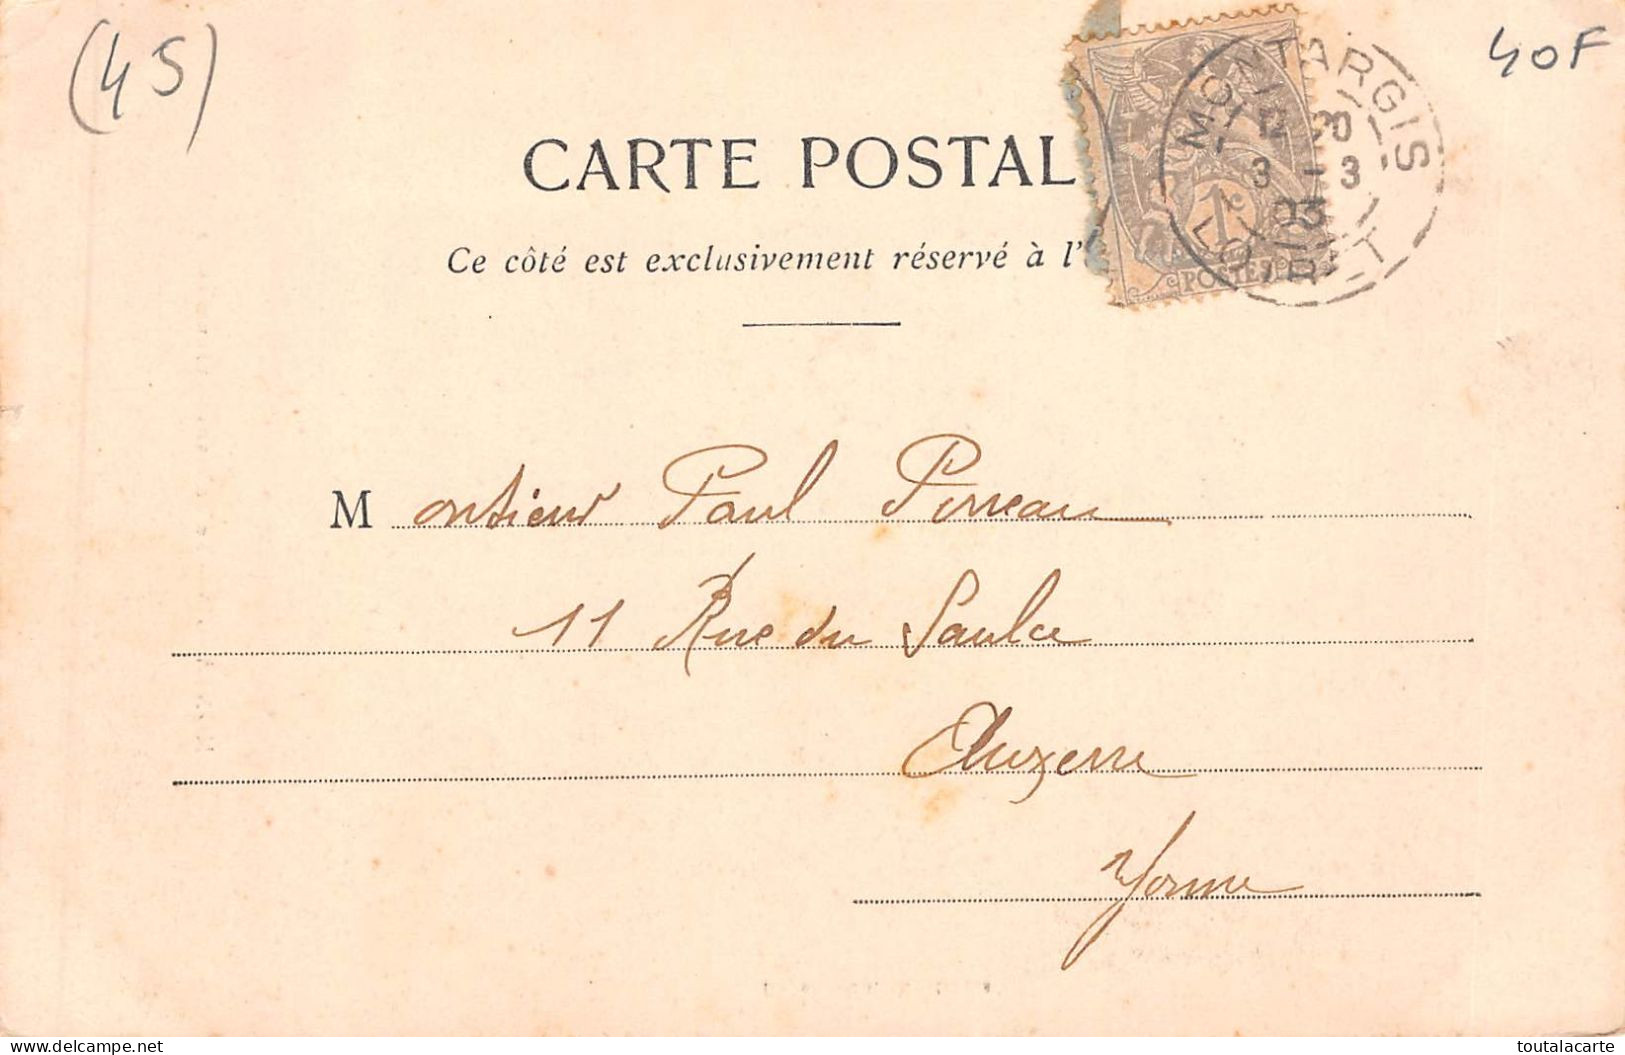 (45)
40F
CARTE POSTAL
Ce côté est exclusivement réservé à l'
MONTARGIS
12 20
3 - 3
03
LOIRET
1c
POSTES
Monsieur Paul Perreau
11 Rue du Saulce
Auxerre
Yonne
toutalacarte